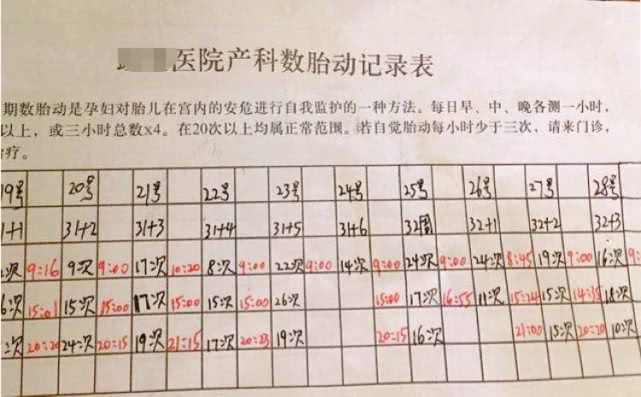 医院产科数胎动记录表
期数胎动是孕妇对胎儿在宫内的安危进行自我监护的一种方法。每日早、中、晚各测一小时，
以上，或三小时总数x4。在20次以上均属正常范围。若自觉胎动每小时少于三次，请来门诊，
治疗。
19号 20号 21号 22号 23号 24号 25号 26号 27号 28号
1+1 31+2 31+3 31+4 31+5 31+6 32周 32+1 32+2 32+3
次 9:16 9次 9:00 17次 10:20 8次 9:00 22次 9:00 14次 9:00 24次 9:00 24次 8:45 19次 9:00 16次 9:
6次 15:01 15次 15:00 17次 15:00 15次 15:00 26次 15:00 17次 16:55 11次 15:24 15次 14:35 18次
次 20:20 24次 20:15 19次 21:15 17次 20:23 19次 20:15 16次 21:00 15次 20:20 10次